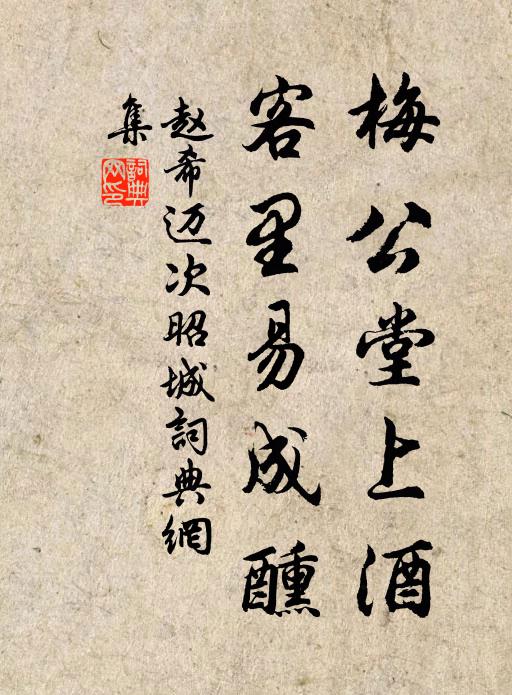 梅公堂上酒
客里易成醺
赵希迈次昭城詞典網
集
詞典網印